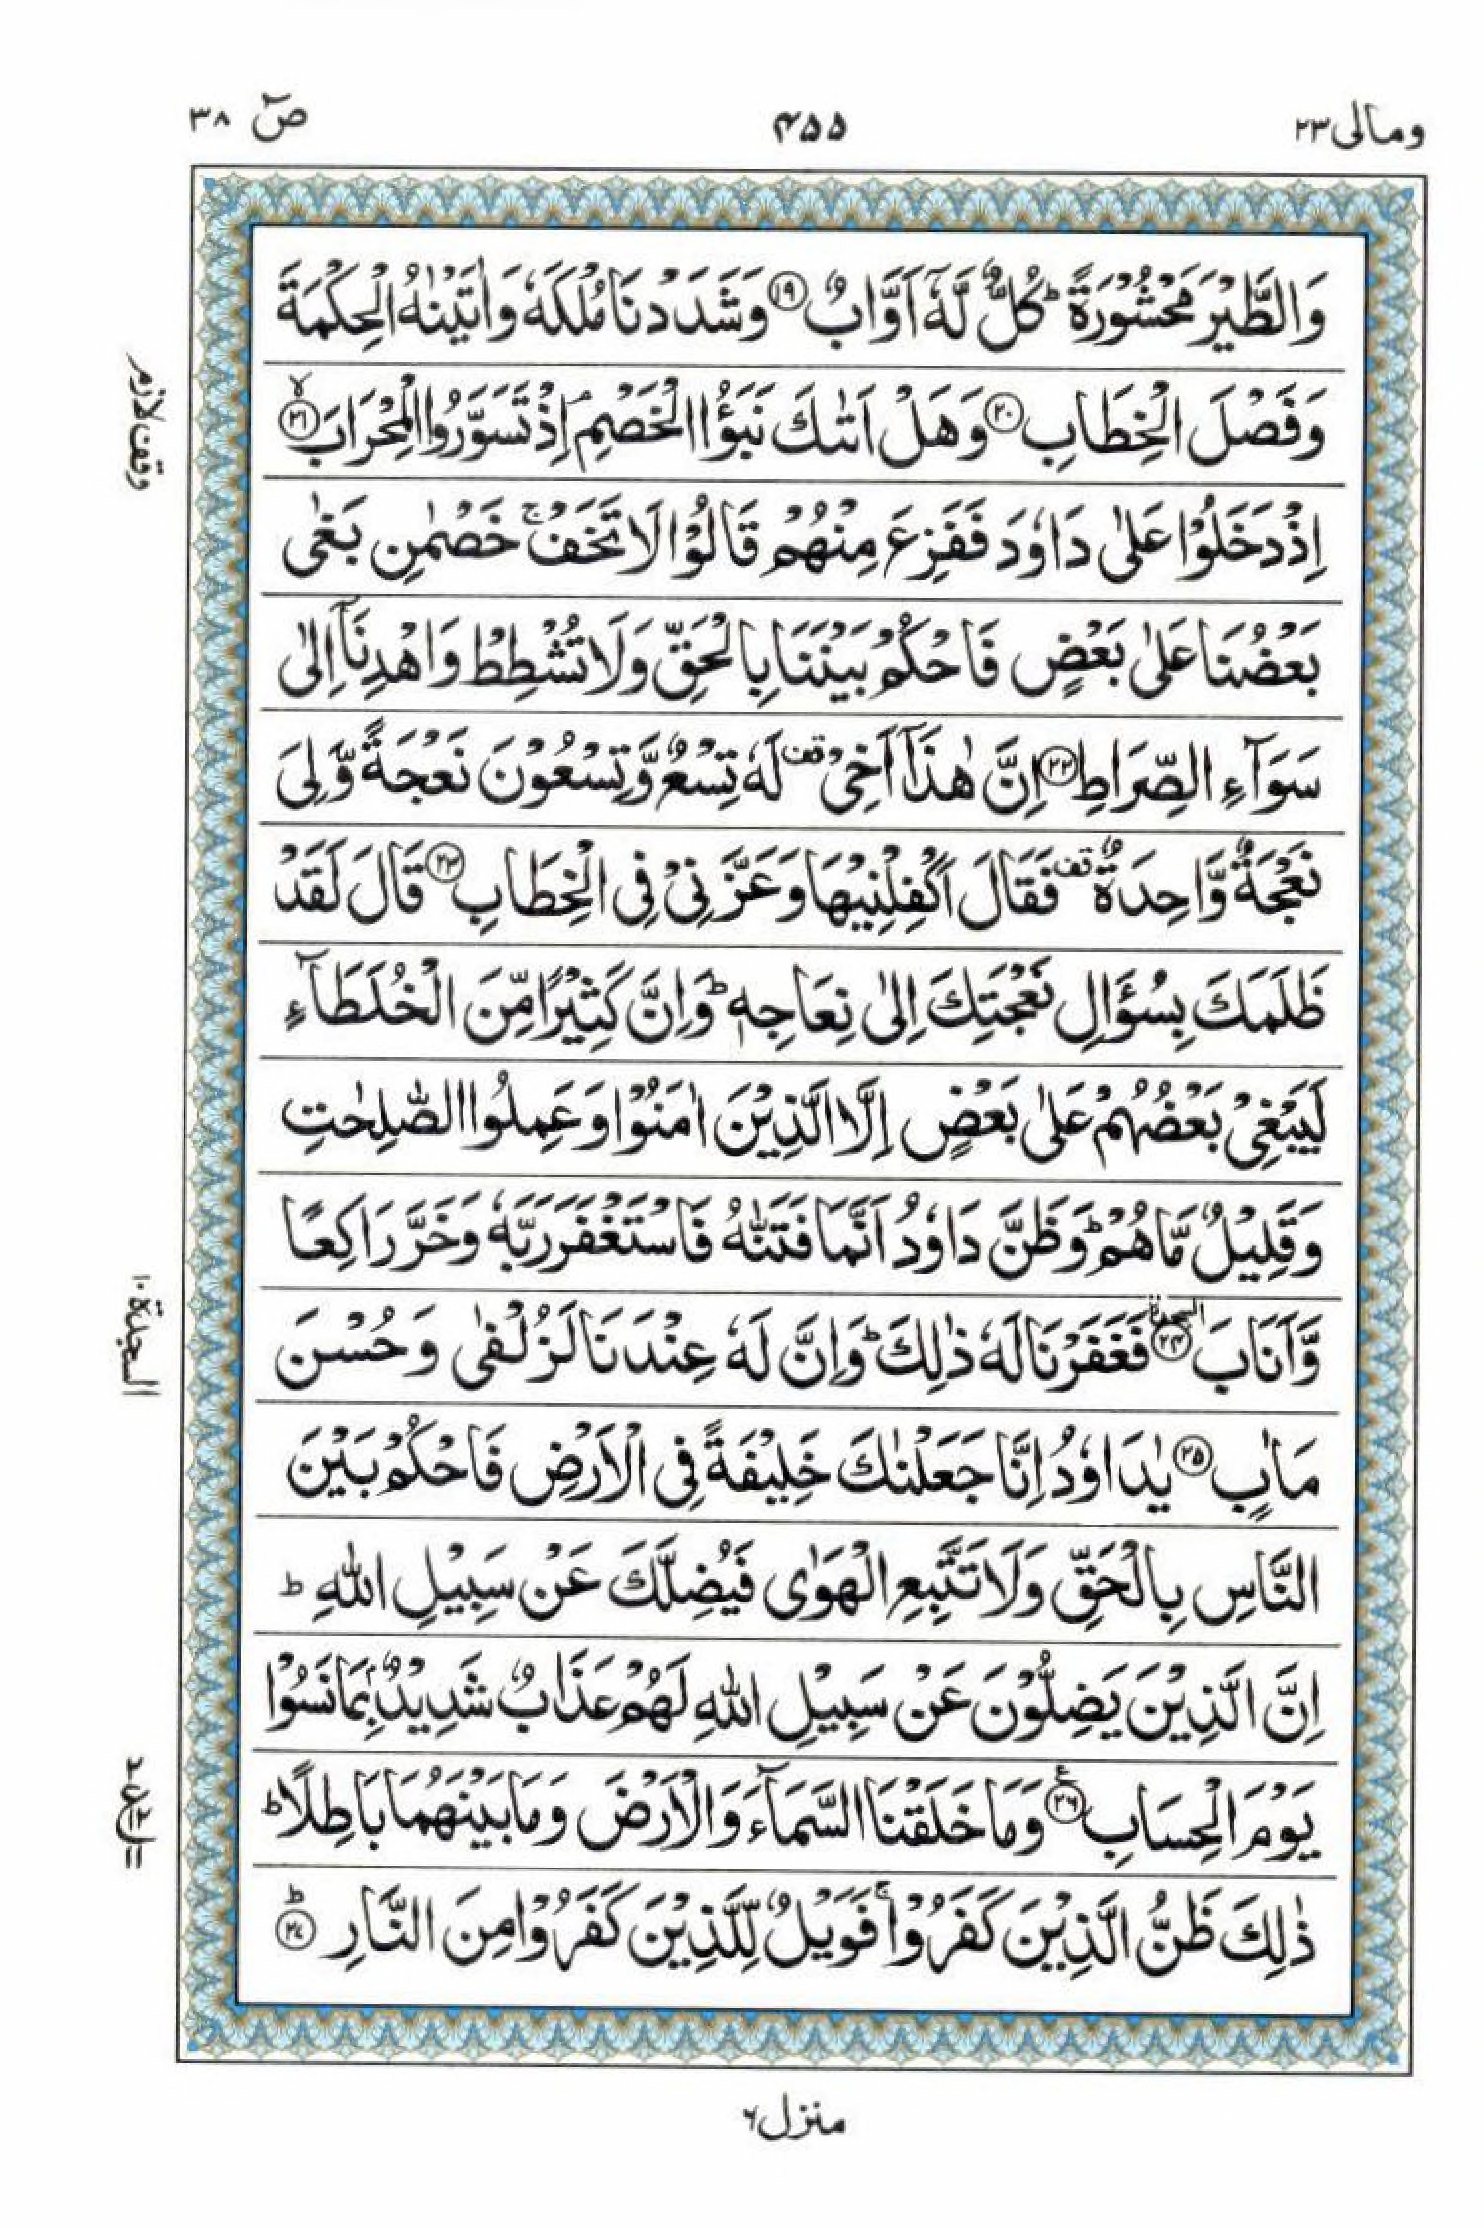 ومالى ٢٣
٤٥٥
صٓ ٣٨
وَالطَّيْرَ مَحْشُوْرَةً ؕ كُلٌّ لَّهٗۤ اَوَّابٌ ﴿۱۹﴾ وَشَدَدْنَا مُلْكَهٗ وَاٰتَيْنٰهُ الْحِكْمَةَ
وَفَصْلَ الْخِطَابِ ﴿۲۰﴾ وَهَلْ اَتٰىكَ نَبَؤُا الْخَصْمِ ۘ اِذْ تَسَوَّرُوا الْمِحْرَابَ ﴿۲۱﴾ ۙ
وقف لازم
اِذْ دَخَلُوْا عَلٰى دَاوٗدَ فَفَزِعَ مِنْهُمْ قَالُوْا لَا تَخَفْ ۚ خَصْمٰنِ بَغٰى
بَعْضُنَا عَلٰى بَعْضٍ فَاحْكُمْ بَيْنَنَا بِالْحَقِّ وَلَا تُشْطِطْ وَاهْدِنَاۤ اِلٰى
سَوَآءِ الصِّرَاطِ ﴿۲۲﴾ اِنَّ هٰذَاۤ اَخِيْ قف لَهٗ تِسْعٌ وَّتِسْعُوْنَ نَعْجَةً وَّلِيَ
نَعْجَةٌ وَّاحِدَةٌ قف فَقَالَ اَكْفِلْنِيْهَا وَعَزَّنِيْ فِى الْخِطَابِ ﴿۲۳﴾ قَالَ لَقَدْ
ظَلَمَكَ بِسُؤَالِ نَعْجَتِكَ اِلٰى نِعَاجِهٖ ؕ وَاِنَّ كَثِيْرًا مِّنَ الْخُلَطَآءِ
لَيَبْغِيْ بَعْضُهُمْ عَلٰى بَعْضٍ اِلَّا الَّذِيْنَ اٰمَنُوْا وَعَمِلُوا الصّٰلِحٰتِ
وَقَلِيْلٌ مَّا هُمْ ؕ وَظَنَّ دَاوٗدُ اَنَّمَا فَتَنّٰهُ فَاسْتَغْفَرَ رَبَّهٗ وَخَرَّ رَاكِعًا
وَّاَنَابَ ﴿۲۴﴾ السجدة فَغَفَرْنَا لَهٗ ذٰلِكَ ؕ وَاِنَّ لَهٗ عِنْدَنَا لَزُلْفٰى وَحُسْنَ
السجدة ١٠
مَاٰبٍ ﴿۲۵﴾ يٰدَاوٗدُ اِنَّا جَعَلْنٰكَ خَلِيْفَةً فِى الْاَرْضِ فَاحْكُمْ بَيْنَ
النَّاسِ بِالْحَقِّ وَلَا تَتَّبِعِ الْهَوٰى فَيُضِلَّكَ عَنْ سَبِيْلِ اللّٰهِ ؕ
اِنَّ الَّذِيْنَ يَضِلُّوْنَ عَنْ سَبِيْلِ اللّٰهِ لَهُمْ عَذَابٌ شَدِيْدٌۢ بِمَا نَسُوْا
يَوْمَ الْحِسَابِ ﴿۲۶﴾ ع وَمَا خَلَقْنَا السَّمَآءَ وَالْاَرْضَ وَمَا بَيْنَهُمَا بَاطِلًا ؕ
ذٰلِكَ ظَنُّ الَّذِيْنَ كَفَرُوْا ۚ فَوَيْلٌ لِّلَّذِيْنَ كَفَرُوْا مِنَ النَّارِ ﴿۲۷﴾ ؕ
منزل ٦